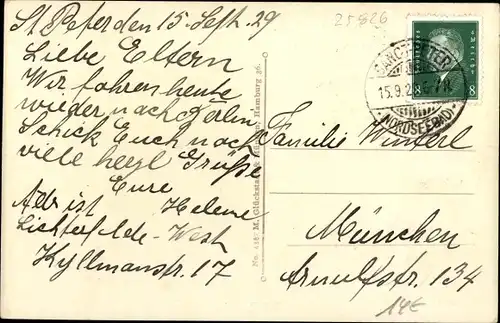 St Peter den 15. Sept. 29
Liebe Eltern
Wir fahren heute
wieder nach Berlin
Schick Euch noch
viele herzl Grüße
Eure
Helene
Adr ist
Lichterfelde-West
Kyllmanstr. 17
No. 418 M. Glückstadt & Münden Hamburg 36.
25826
8 8
SANCT PETER
15.9.2
(NORDSEEBAD)
Familie Winterl
München
Arnulfstr. 134
14€